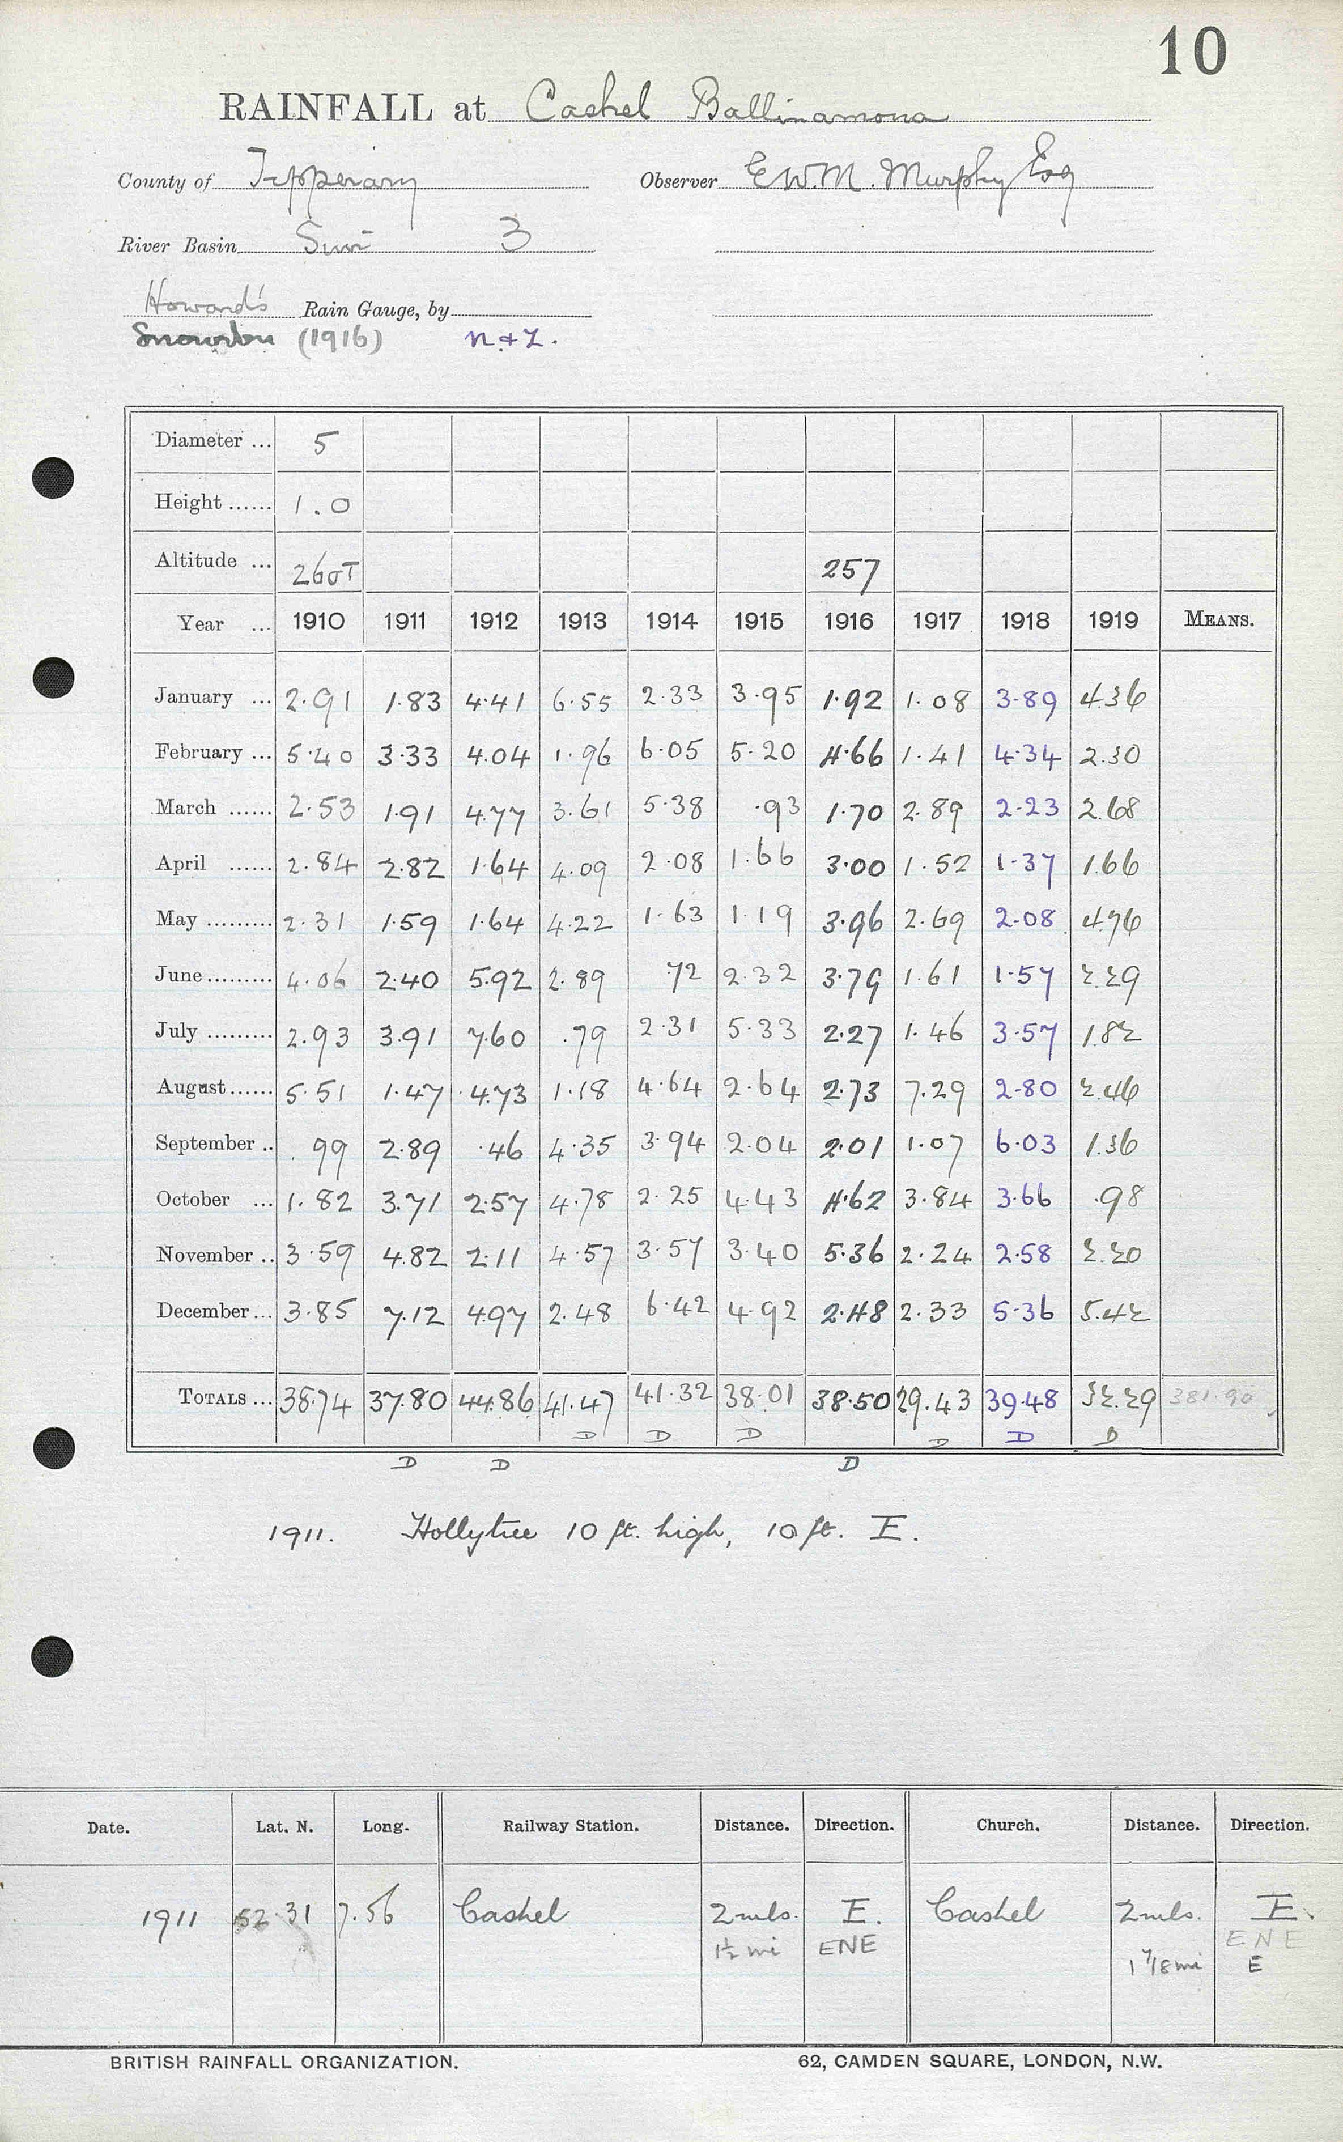 10
RAINFALL at Cashel Ballinamona
County of Tipperary Observer E.W.M. Murphy Esq
River Basin Suir 3
Howard's Rain Gauge, by
Snowdon (1916) n+Z.
Diameter ... 5
Height ...... 1.0
Altitude ... 260T 257
Year ... 1910 1911 1912 1913 1914 1915 1916 1917 1918 1919 MEANS.
January ... 2.91 1.83 4.41 6.55 2.33 3.95 1.92 1.08 3.89 4.36
February ... 5.40 3.33 4.04 1.96 6.05 5.20 4.66 1.41 4.34 2.30
March ...... 2.53 1.91 4.77 3.61 5.38 .93 1.70 2.89 2.23 2.68
April ...... 2.84 2.82 1.64 4.09 2.08 1.66 3.00 1.52 1.37 1.66
May ......... 2.31 1.59 1.64 4.22 1.63 1.19 3.96 2.69 2.08 4.76
June ......... 4.06 2.40 5.92 2.89 .72 2.32 3.79 1.61 1.57 2.29
July ......... 2.93 3.91 7.60 .79 2.31 5.33 2.27 1.46 3.57 1.82
August ...... 5.51 1.47 4.73 1.18 4.64 2.64 2.73 7.29 2.80 2.46
September .. .99 2.89 .46 4.35 3.94 2.04 2.01 1.07 6.03 1.36
October ... 1.82 3.71 2.57 4.78 2.25 4.43 4.62 3.84 3.66 .98
November .. 3.59 4.82 2.11 4.57 3.57 3.40 5.36 2.24 2.58 2.20
December ... 3.85 7.12 4.97 2.48 6.42 4.92 2.48 2.33 5.36 5.42
TOTALS ... 38.74 37.80 44.86 41.47 41.32 38.01 38.50 29.43 39.48 32.29 381.90
D D D D D D
D D D
1911. Hollytree 10 ft. high, 10 ft. E.
Date. Lat. N. Long. Railway Station. Distance. Direction. Church. Distance. Direction.
1911 52.31 7.56 Cashel 2 mls. E. Cashel 2 mls. E.
1½ mi ENE ENE
1 7/8 mi E
BRITISH RAINFALL ORGANIZATION. 62, CAMDEN SQUARE, LONDON, N.W.